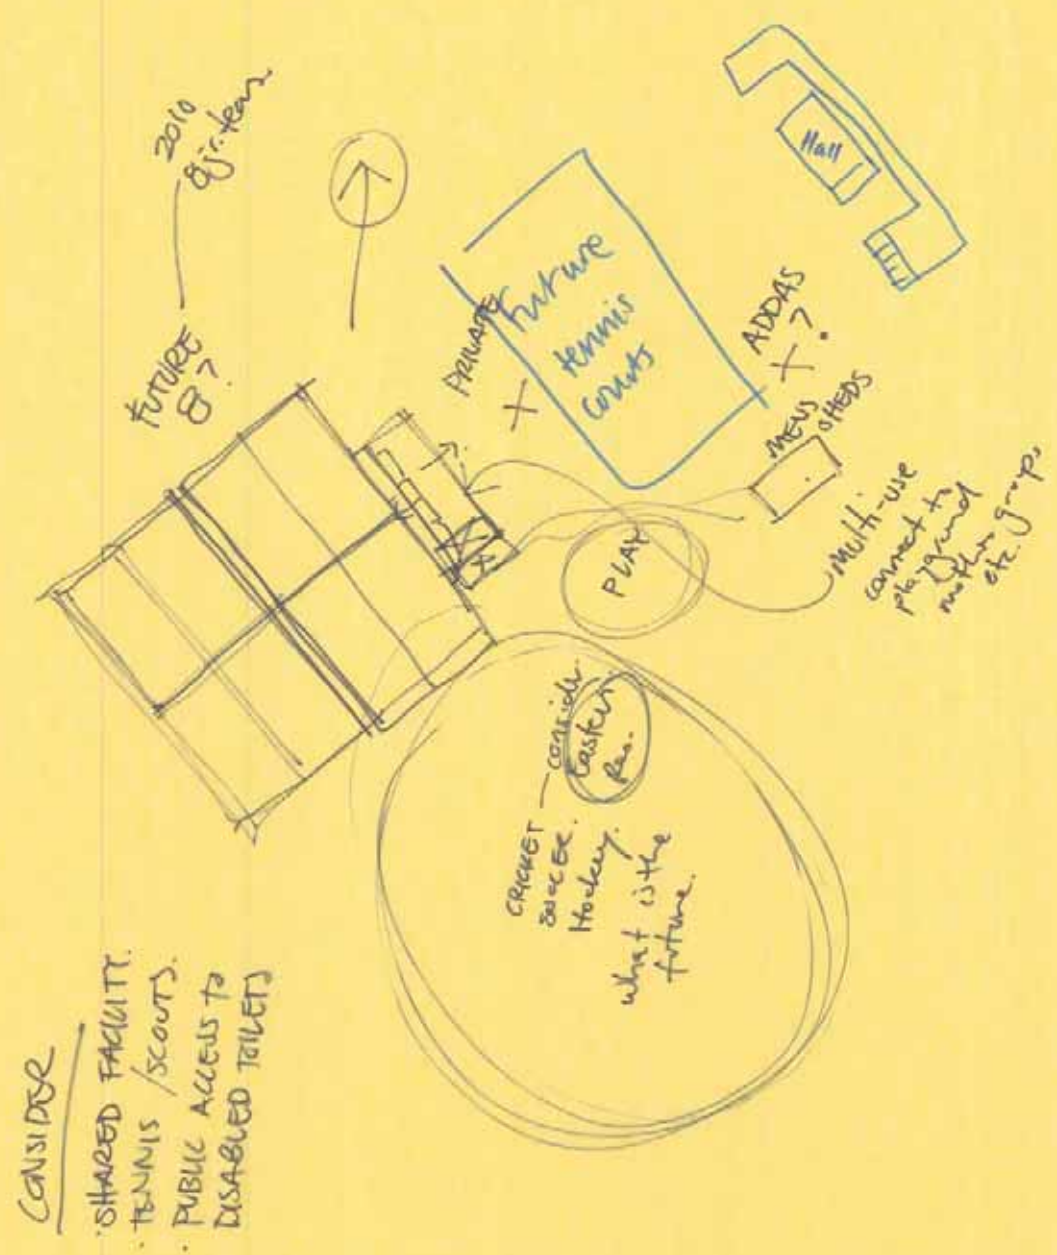 CONSIDER
· SHARED FACILITY.
· TENNIS / SCOUTS.
· PUBLIC ACCESS TO
DISABLED TOILETS
FUTURE
8?
2010
8 jr. teams
PRIVATE
X
Future
tennis
courts
Hall
ADDAS
X ?
MENS
SHEDS
multi-use
connect to
playground
mothers groups
etc.
PLAY
CRICKET — consider
SOCCER.
Hockey.
Eastern
Res.
what is the
future.